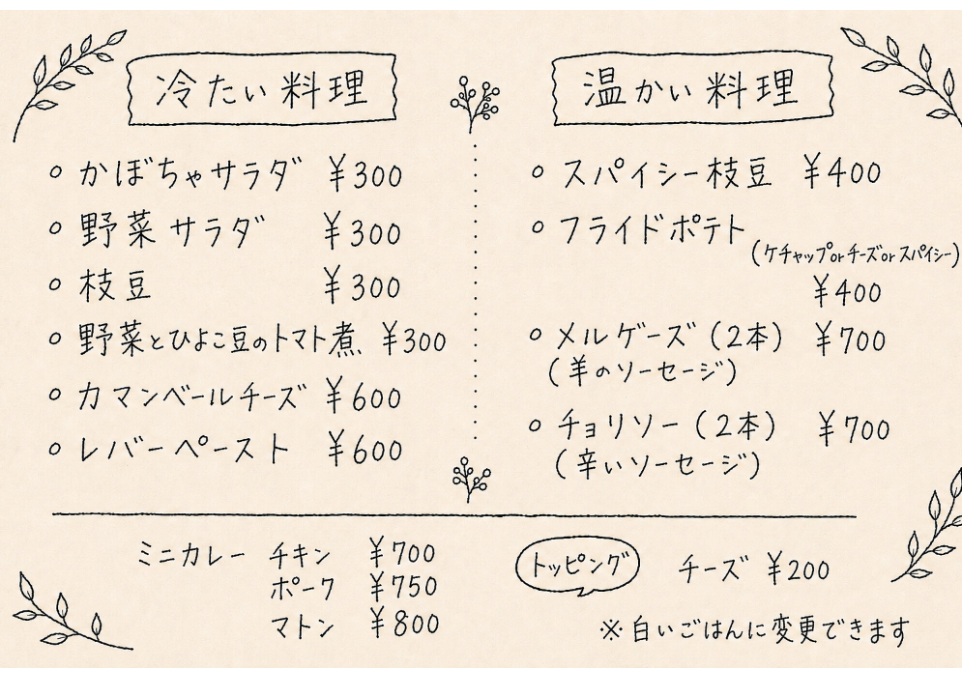 冷たい料理
かぼちゃサラダ ¥300
野菜サラダ ¥300
枝豆 ¥300
野菜とひよこ豆のトマト煮 ¥300
カマンベールチーズ ¥600
レバーペースト ¥600
温かい料理
スパイシー枝豆 ¥400
フライドポテト
(ケチャップorチーズorスパイシー)
¥400
メルゲーズ(2本) ¥700
(羊のソーセージ)
チョリソー(2本) ¥700
(辛いソーセージ)
ミニカレー チキン ¥700
ポーク ¥750
マトン ¥800
トッピング チーズ ¥200
※白いごはんに変更できます